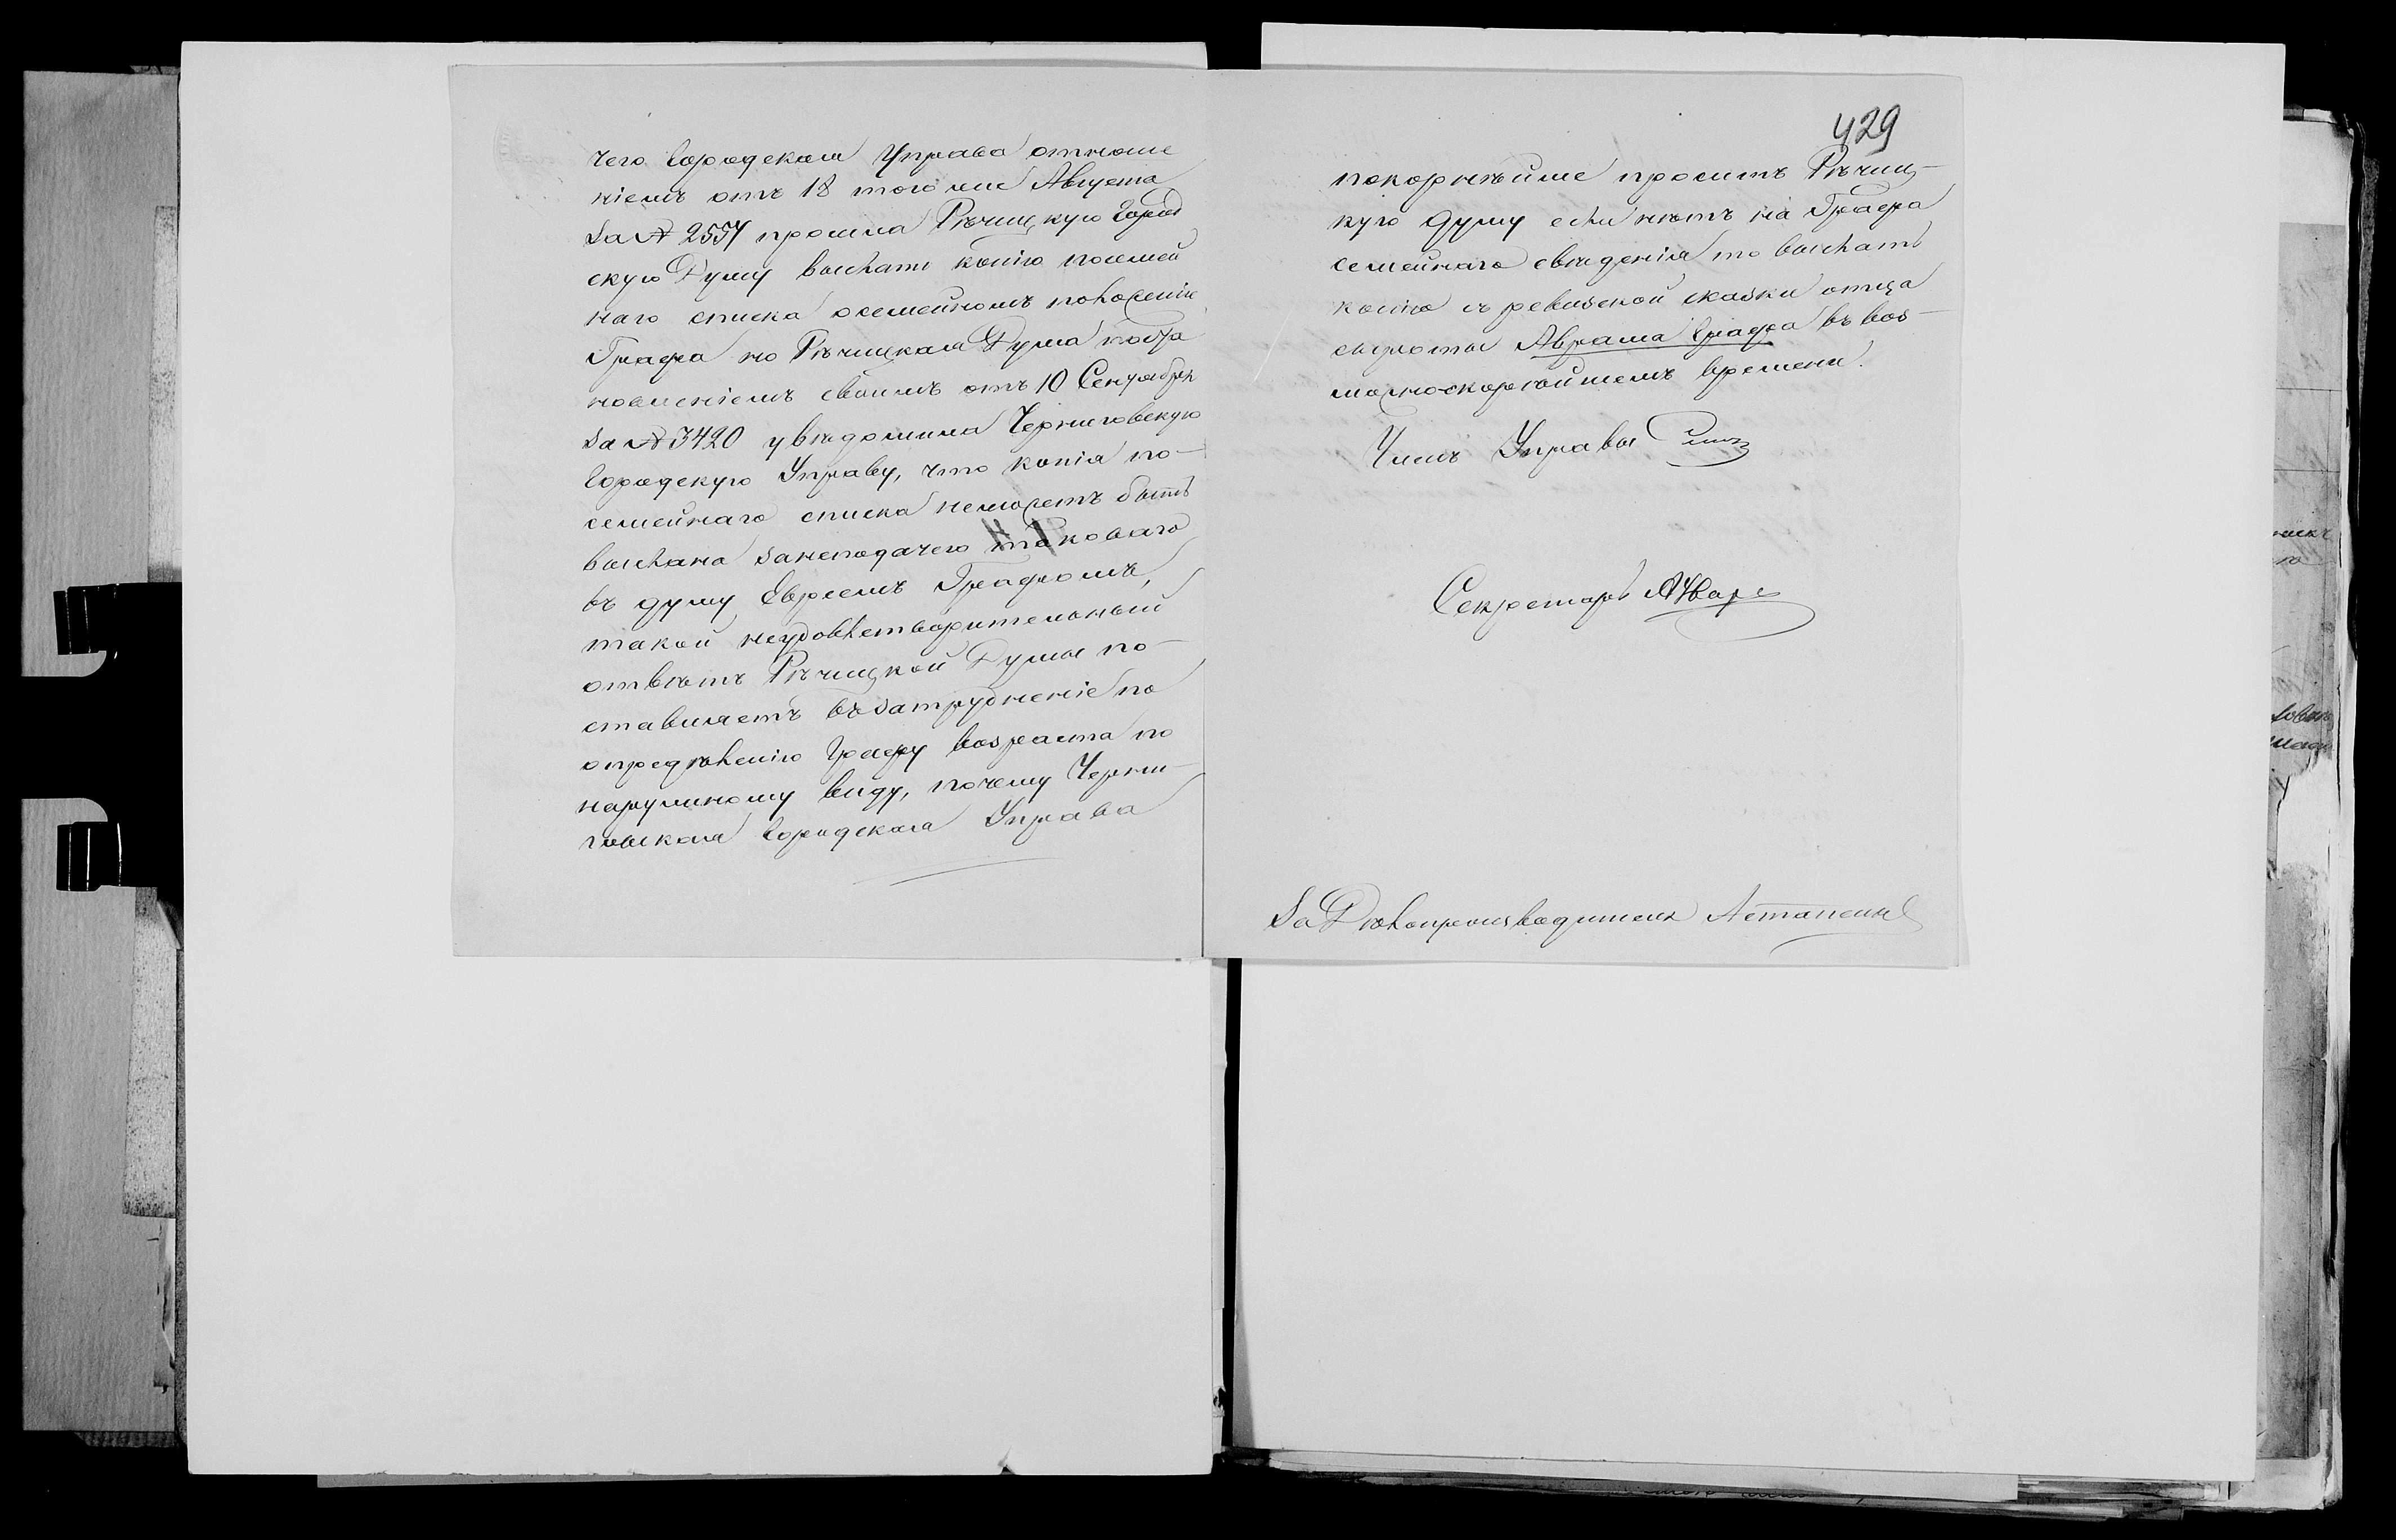 чего Городская Управа отноше
ніемъ отъ 18 того же Августа
за № 2554 просила Рѣчицкую Город
скую Думу выслать копію посемей
наго списка о семейномъ положеніи
Графа но Рѣчицкая Дума
новленіемъ своимъ отъ 10 Сентября
за № 3420 увѣдомила Черниговскую
Городскую Управу, что копія по-
семейнаго списка неможетъ быть
выслана занеподачею таковаго
въ думу Евреемъ Графомъ,
такой неудовлетворительный
отвѣтъ Рѣчицкой Думы по-
ставляетъ въ затрудненіе по
опредѣленію Графу возраста по
наружному виду, почему Черни-
говская Городская Управа
429
покорнѣйше проситъ Рѣчиц-
кую Думу если нѣтъ на Графа
семейнаго свѣденія то выслать
копію съ ревизской сказки отца
сироты Аврама Графа въ воз-
можно скорѣйшемъ времени.
Членъ Управы
Секретарь
За Дѣлопроизводителя